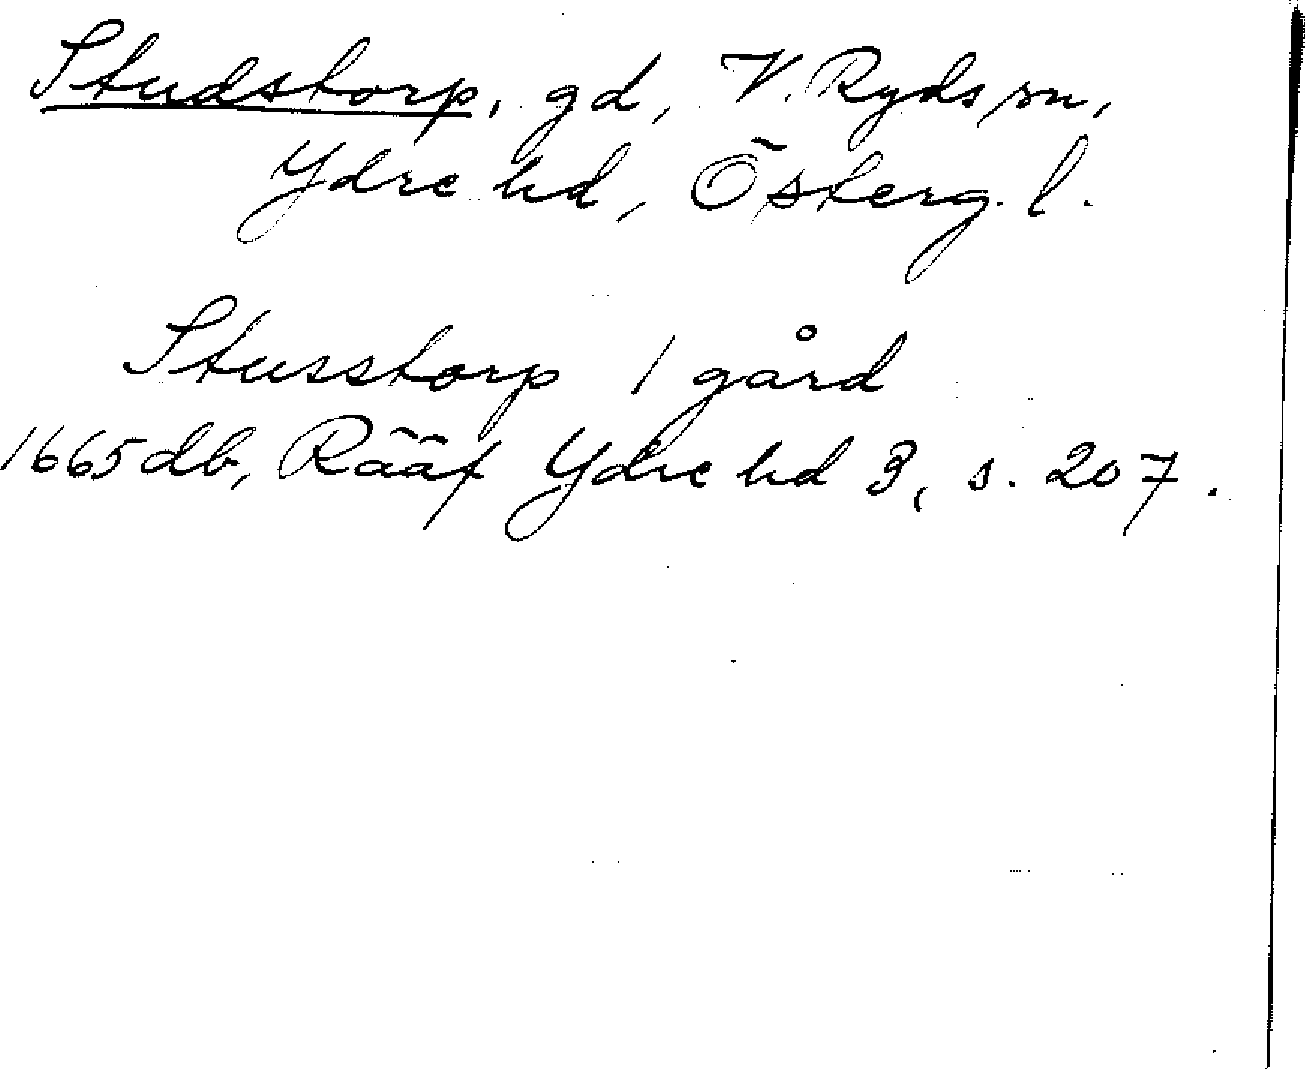 Studstorp, gd, V. Ryds sn,
Ydre hd, Österg. l.
Stusstorp 1 gård
1665 db, Rääf Ydre hd 3, s. 207.